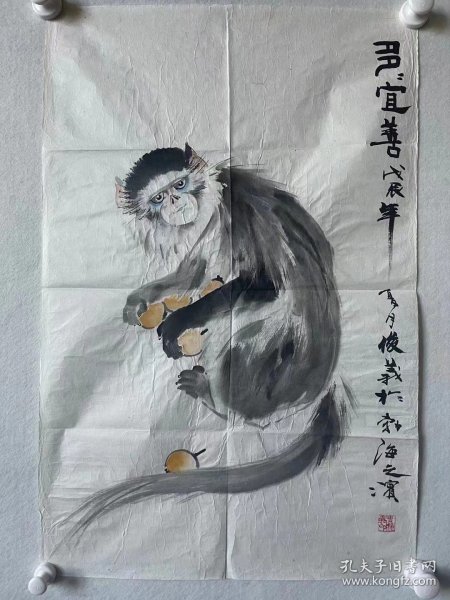 多宜善戊辰年
夏月俊義於勃海之濱
孔夫子旧书网
www.kongfz.com